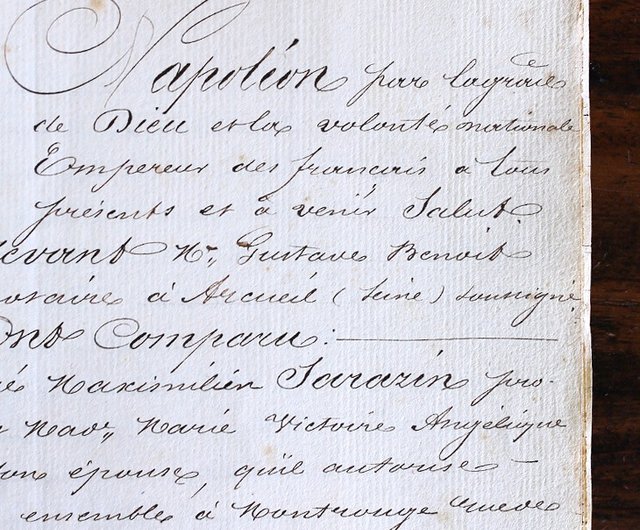 Napoléon par la grâce
de Dieu et la volonté nationale
Empereur des français à tous
présents et à venir Salut.
evant Mr. Gustave Benoit
otaire à Arcueil (Seine) soussigné
Ont Comparu:
és Maximilien Sarazin pro-
Mad. Marie Victoire Angélique
son épouse, qu'il autorise
ensemble à Montrouge